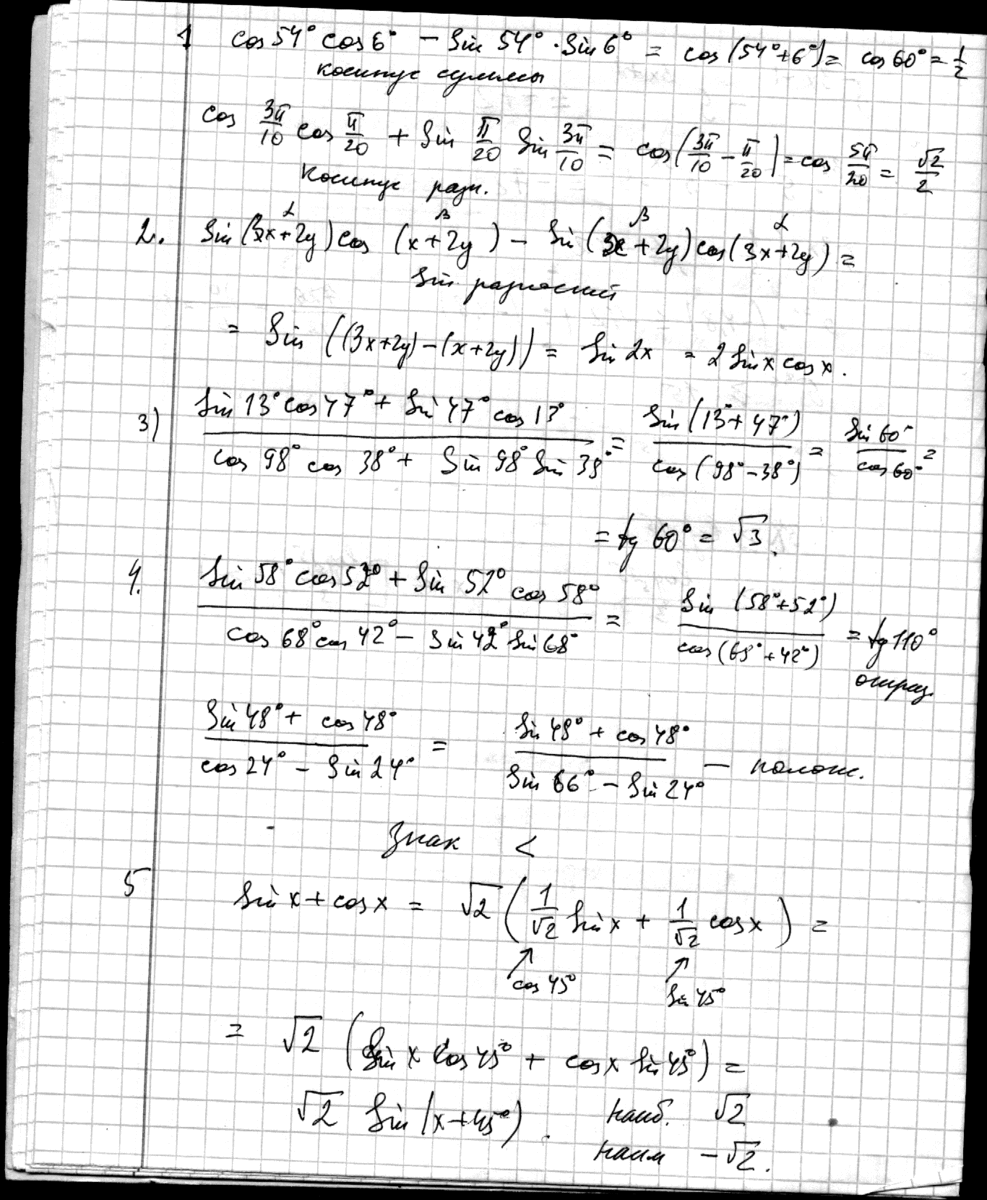 1 cos 54° cos 6° − sin 54° · sin 6° = cos(54°+6°) = cos 60° = 1/2
косинус суммы
cos 3π/10 cos π/20 + sin π/20 sin 3π/10 = cos(3π/10 − π/20) = cos 5π/20 = √2/2
косинус разн.
α β β α
2. sin(3x+2y) cos(x+2y) − sin(x+2y) cos(3x+2y) =
sin разностий
= sin((3x+2y)−(x+2y)) = sin 2x = 2 sin x cos x.
3) (sin 13° cos 47° + sin 47° cos 13°)/(cos 98° cos 38° + sin 98° sin 38°) = sin(13°+47°)/cos(98°−38°) = sin 60°/cos 60° =
= tg 60° = √3.
4. (sin 58° cos 52° + sin 52° cos 58°)/(cos 68° cos 42° − sin 42° sin 68°) = sin(58°+52°)/cos(68°+42°) = tg 110°
отриц.
(sin 48° + cos 48°)/(cos 24° − sin 24°) = (sin 48° + cos 48°)/(sin 66° − sin 24°) − полож.
Знак <
5 sin x + cos x = √2 (1/√2 sin x + 1/√2 cos x) =
↑ cos 45° ↑ sin 45°
= √2 (sin x cos 45° + cos x sin 45°) =
√2 sin(x+45°). наиб. √2
наим −√2.